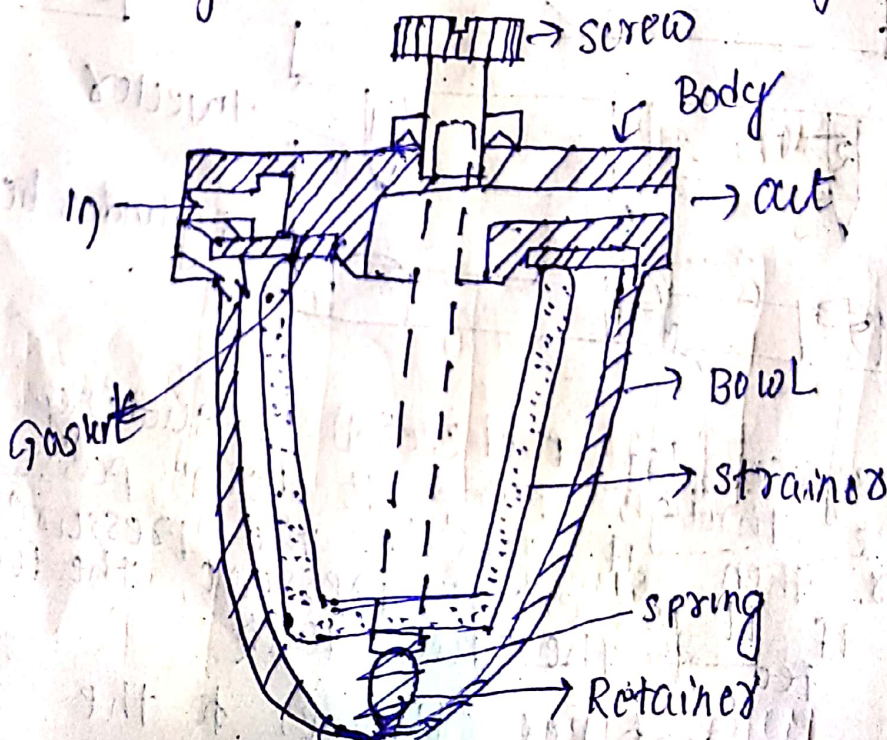 screw
Body
In
out
Gasket
BOWL
Strainer
spring
Retainer